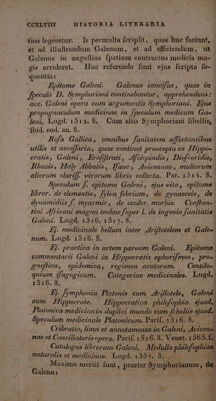 CCXLVIII HISTORIA LITERARIA
tius legeretur. Is permulta scripsit, quae huc faciunt,
et ad illustrandum Galenum, et ad efficiendum, ut
Galenus in angustius spatium contractus medicis ma-
gis arrideret. Huc referendo sunt ejus scripta se-
quentia:
Epitome Galeni. Galenus concisus, quae in
speculo D. Symphoriani continebantur, apprehendens:
ace. Galeni opera cum argumentis Symphoriani. Ejus
propugnaculum medicinae in speculum medicum Ga-
leni. Lugd. 1512. 8. Cum aliis Symphoriani libellis,
ibid. eod. an. 8.
Rosa Gallica, omnibus sanitatem affectantibus
utilis et necessaria, quae continet praecepta ex Hippo-
cratis, Galeni, Erasistrati, Asclepiadis, Dioscoridis,
Rhazis, Haly Abbatis, Isaac, Avicennae, multorum
aliorum clariss. virorum libris collecta. Par. 1514. 8.
Speculum s. epitome Galeni, ejus vita, epitome
libror. de elementis, febrium, de gynaeceis, de
dynamidiis s. myarmic, de oculor. morbis. Constan-
tini Africani magna techne super l. de ingenio sanitatis
Galeni. Lugd. 1516. 1517. 8.
Ej. medicinale bellum inter Aristotelem et Gale-
num. Lugd. 1516. 8.
Ej. practica in artem parvam Galeni. Epitome
commentarii Galeni in Hippocratis aphorismos, pro-
gnostica, epidemica, regimen acutorum. Centilo-
quium isagogicum. Categoriae medicinales. Lugd.
1516. 8.
Ej. symphonia Platonis cum Aristotele, Galeni
cum Hippocrate. Hippocratica philosophia ejusd.
Platonica medicina in duplici mundo cum scholiis ejusd.
Speculum medicinale Platonicum. Paris. 1516. 8.
Cribratio, lima et annotamenta in Galeni, Avicen-
nae et Conciliatoris opera. Paris. 1516. 8. Venet. 1565. f.
Catalogus librorum Galeni. Medulla philosophiae
naturalis et medicinae. Lugd. 1534. 8.
Maxime meriti sunt, praeter Symphorianum, de
Galeno: